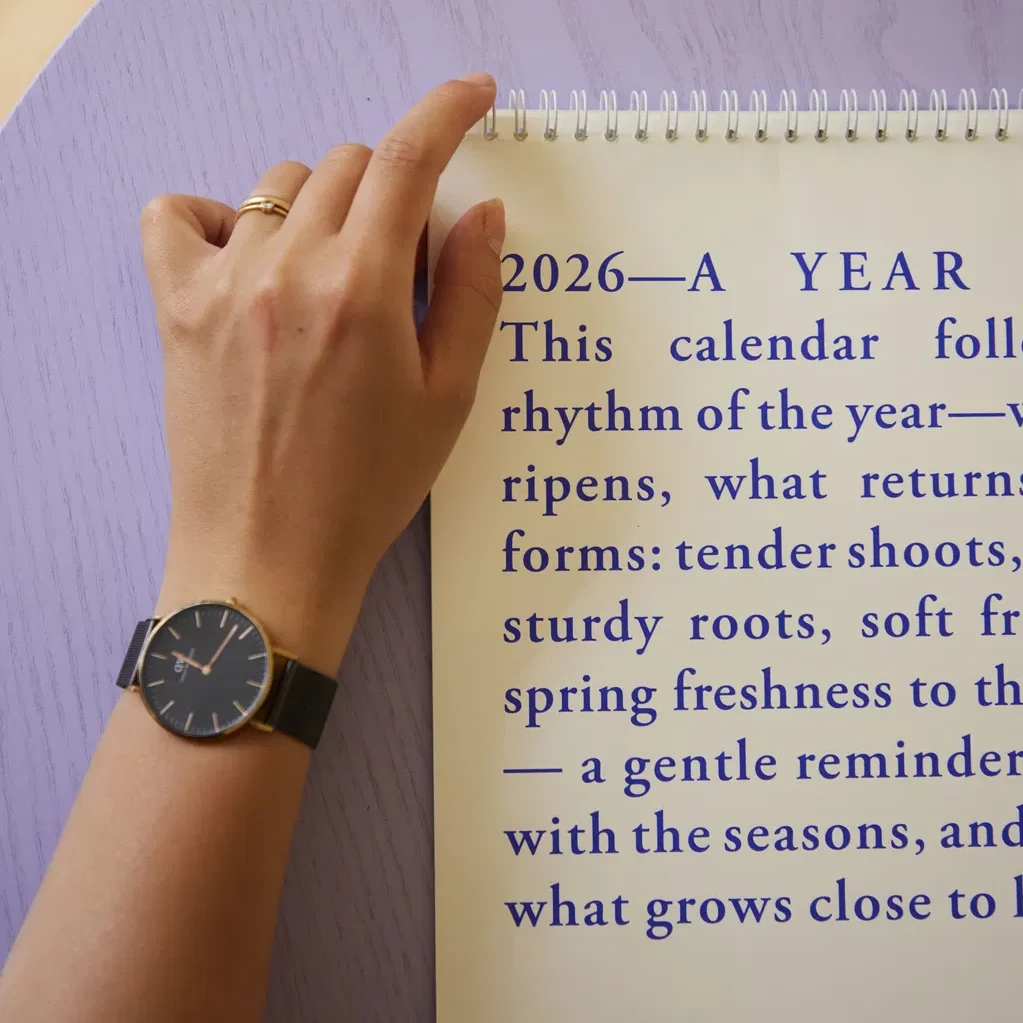 2026—A YEAR
This calendar foll
rhythm of the year—
ripens, what returns
forms: tender shoots,
sturdy roots, soft fr
spring freshness to th
— a gentle reminder
with the seasons, and
what grows close to